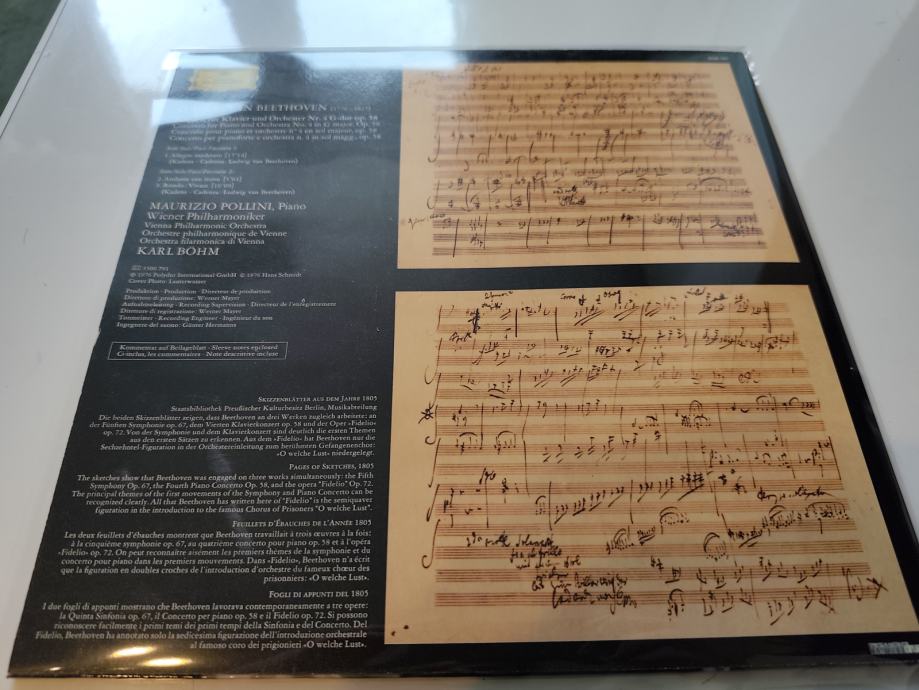 N BEETHOVEN
für Klavier und Orchester Nr. 4 G-dur op. 58
Concerto for Piano and Orchestra No. 4 in G major, Op. 58
Concerto pour piano et orchestre n° 4 en sol majeur, op. 58
Concerto per pianoforte e orchestra n. 4 in sol magg., op. 58
1. Allegro moderato [17'14]
(Kadenz · Cadenza: Ludwig van Beethoven)
2. Andante con moto
3. Rondo. Vivace
(Kadenz · Cadenza: Ludwig van Beethoven)
MAURIZIO POLLINI, Piano
Wiener Philharmoniker
Vienna Philharmonic Orchestra
Orchestre philharmonique de Vienne
Orchestra filarmonica di Vienna
KARL BÖHM
℗ 1976 Polydor International GmbH © 1976 Hans Schmidt
Cover Photo: Lauterwasser
Produktion · Production · Directeur de production
Direttore di produzione: Werner Mayer
Aufnahmeleitung · Recording Supervision · Directeur de l'enregistrement
Direttore di registrazione: Werner Mayer
Tonmeister · Recording Engineer · Ingénieur du son
Ingegnere del suono: Günter Hermanns
Kommentar auf Beilageblatt · Sleeve notes enclosed
Ci-inclus, les commentaires · Note descrittive incluse
SKIZZENBLÄTTER AUS DEM JAHRE 1805
Staatsbibliothek Preußischer Kulturbesitz Berlin, Musikabteilung
Die beiden Skizzenblätter zeigen, dass Beethoven an drei Werken zugleich arbeitete: an
der Fünften Symphonie op. 67, dem Vierten Klavierkonzert op. 58 und der Oper »Fidelio«
op. 72. Von der Symphonie und dem Klavierkonzert sind deutlich die ersten Themen
aus den ersten Sätzen zu erkennen. Aus dem »Fidelio« hat Beethoven nur die
Sechzehntel-Figuration in der Orchestereinleitung zum berühmten Gefangenenchor:
»O welche Lust« niedergelegt.
PAGES OF SKETCHES, 1805
The sketches show that Beethoven was engaged on three works simultaneously: the Fifth
Symphony Op. 67, the Fourth Piano Concerto Op. 58, and the opera "Fidelio" Op. 72.
The principal themes of the first movements of the Symphony and Piano Concerto can be
recognized clearly. All that Beethoven has written here of "Fidelio" is the semiquaver
figuration in the introduction to the famous Chorus of Prisoners "O welche Lust".
FEUILLETS D'ÉBAUCHES DE L'ANNÉE 1805
Les deux feuillets d'ébauches montrent que Beethoven travaillait à trois œuvres à la fois:
à la cinquième symphonie op. 67, au quatrième concerto pour piano op. 58 et à l'opéra
»Fidelio« op. 72. On peut reconnaître aisément les premiers thèmes de la symphonie et du
concerto pour piano dans les premiers mouvements. Dans »Fidelio«, Beethoven n'a écrit
que la figuration en doubles croches de l'introduction d'orchestre du fameux chœur des
prisonniers: »O welche Lust«.
FOGLI DI APPUNTI DEL 1805
I due fogli di appunti mostrano che Beethoven lavorava contemporaneamente a tre opere:
la Quinta Sinfonia op. 67, il Concerto per piano op. 58 e il Fidelio op. 72. Si possono
riconoscere facilmente i primi temi dei primi tempi della Sinfonia e del Concerto. Del
Fidelio, Beethoven ha annotato solo la sedicesima figurazione dell'introduzione orchestrale
al famoso coro dei prigionieri »O welche Lust«.